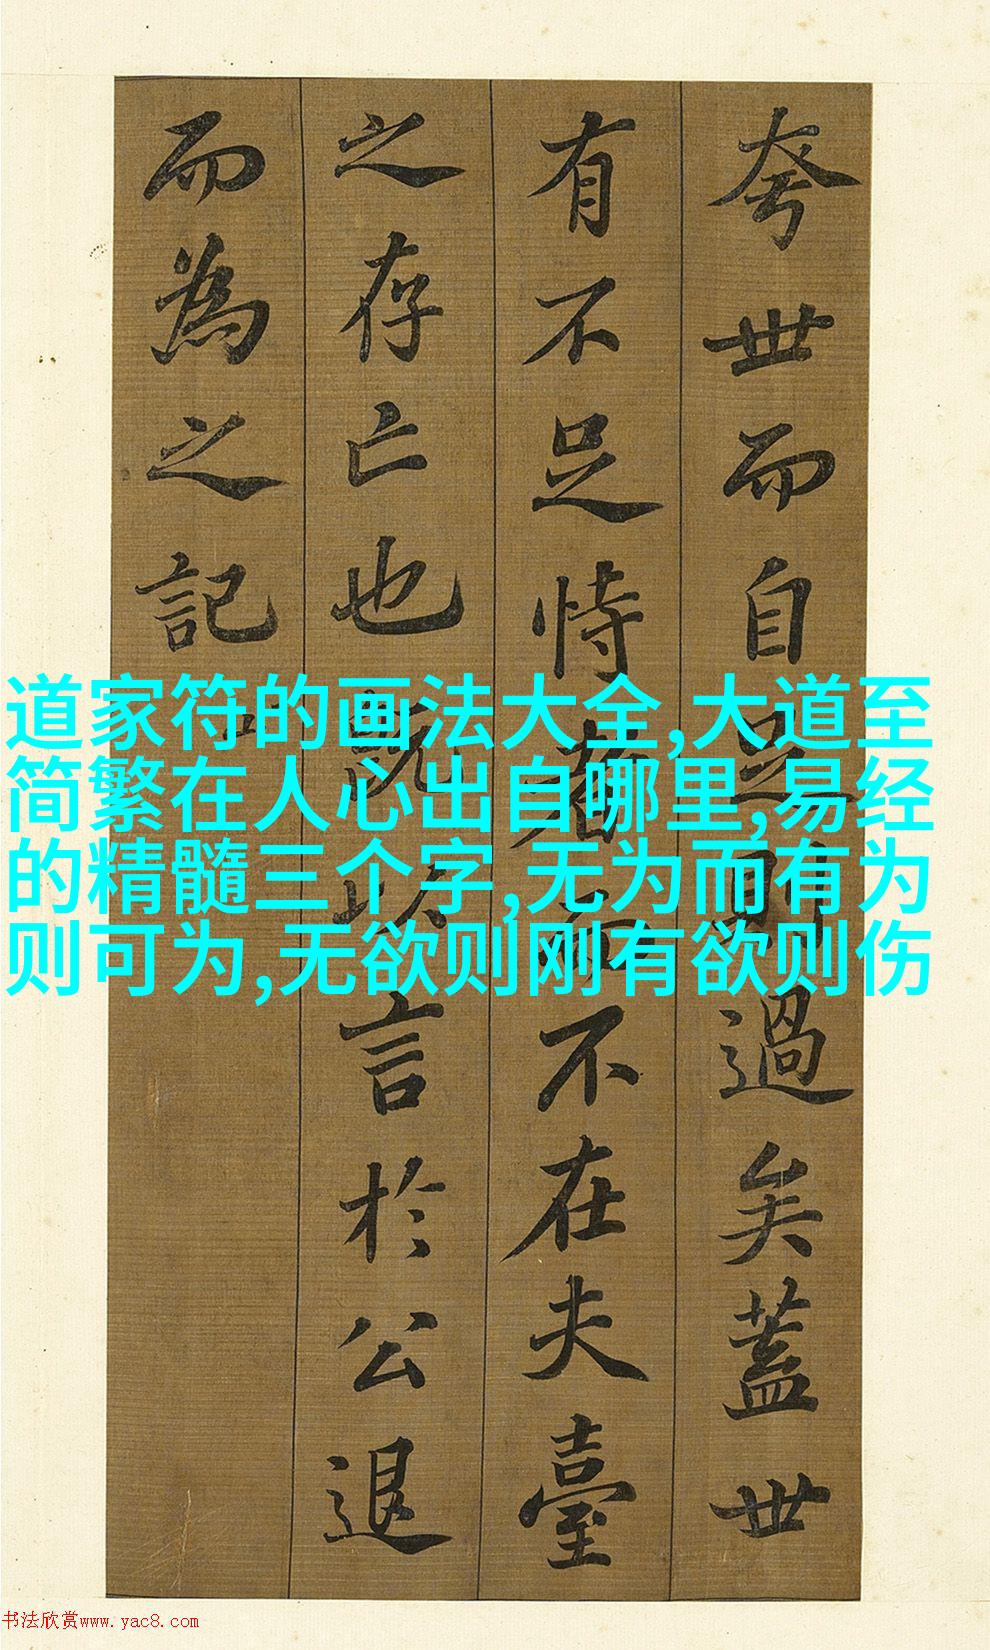 夸世而自足則過矣蓋世
有不足恃者而不在夫臺
之存亡也既以言於公退
而為之記
道家符的画法大全,大道至
简繁在人心出自哪里,易经
的精髓三个字,无为而有为
则可为,无欲则刚有欲则伤
书法欣赏www.yac8.com